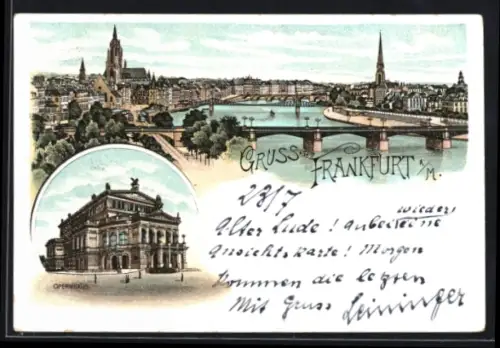 GRUSS AUS FRANKFURT A/M.
OPERNHAUS
23/7
wieder
Alter Lude! Anbei eine
Ansichtskarte! Morgen
kommen die letzten
Mit Gruss Leininger